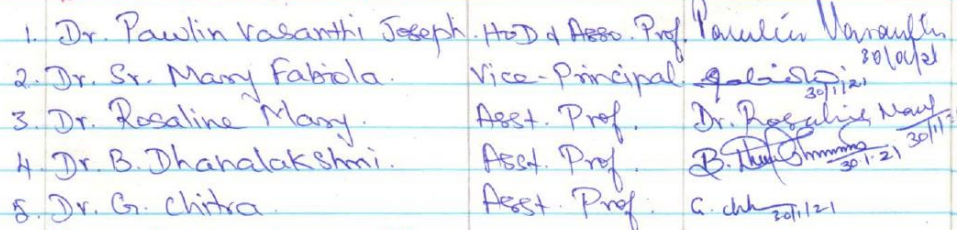 1. Dr. Pawlin Vasanthi Joseph. HoD & Asso. Prof. Pawlin Vasanthi 30/01/21
2. Dr. Sr. Mary Fabiola. Vice-Principal 30/1/21
3. Dr. Rosaline Mary. Asst. Prof. Dr. Rosaline Mary 30/1/21
4. Dr. B. Dhanalakshmi. Asst. Prof. B. 30.1.21
5. Dr. G. Chitra Asst. Prof. G. 30/1/21